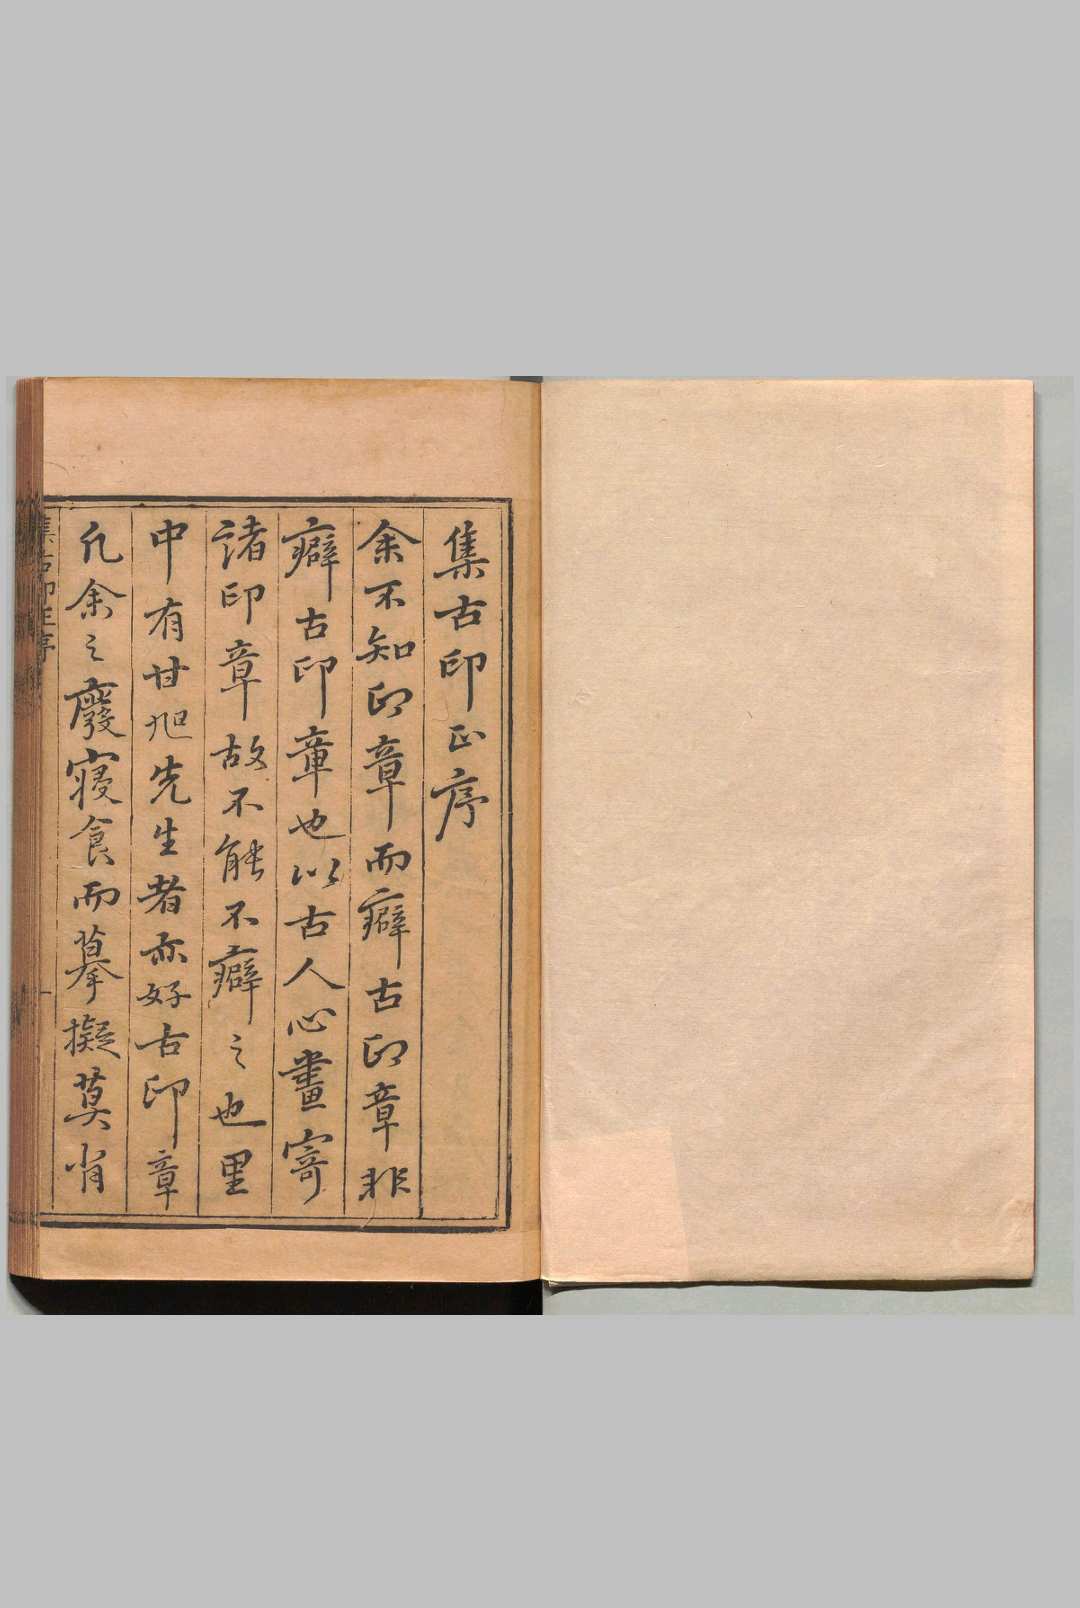 集古印正序
余不知印章而癖古印章非
癖古印章也以古人心畫寄
諸印章故不能不癖之也里
中有甘旭先生者亦好古印章
凡余之廢寢食而摹擬莫肖
集古印正序
一